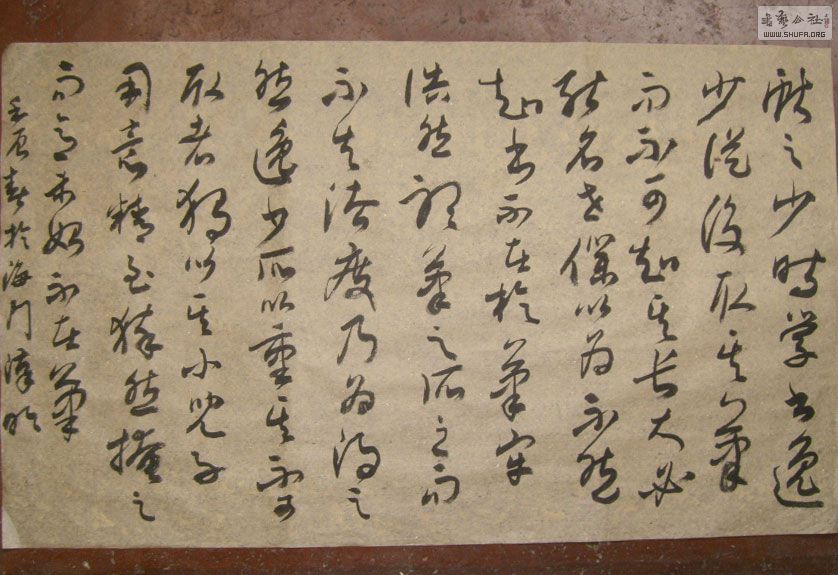 獻之少時學書逸
少從後取其筆
而不可知其長大必
能名世僕以為不然
知書不在於筆牢
浩然聽筆之所之而
不失法度乃為得之
然逸少所以重其不可
取者獨以其小兒子
用意精至猝然掩之
而意未始不在筆
壬辰春於海门
書藝公社
WWW.SHUFA.ORG